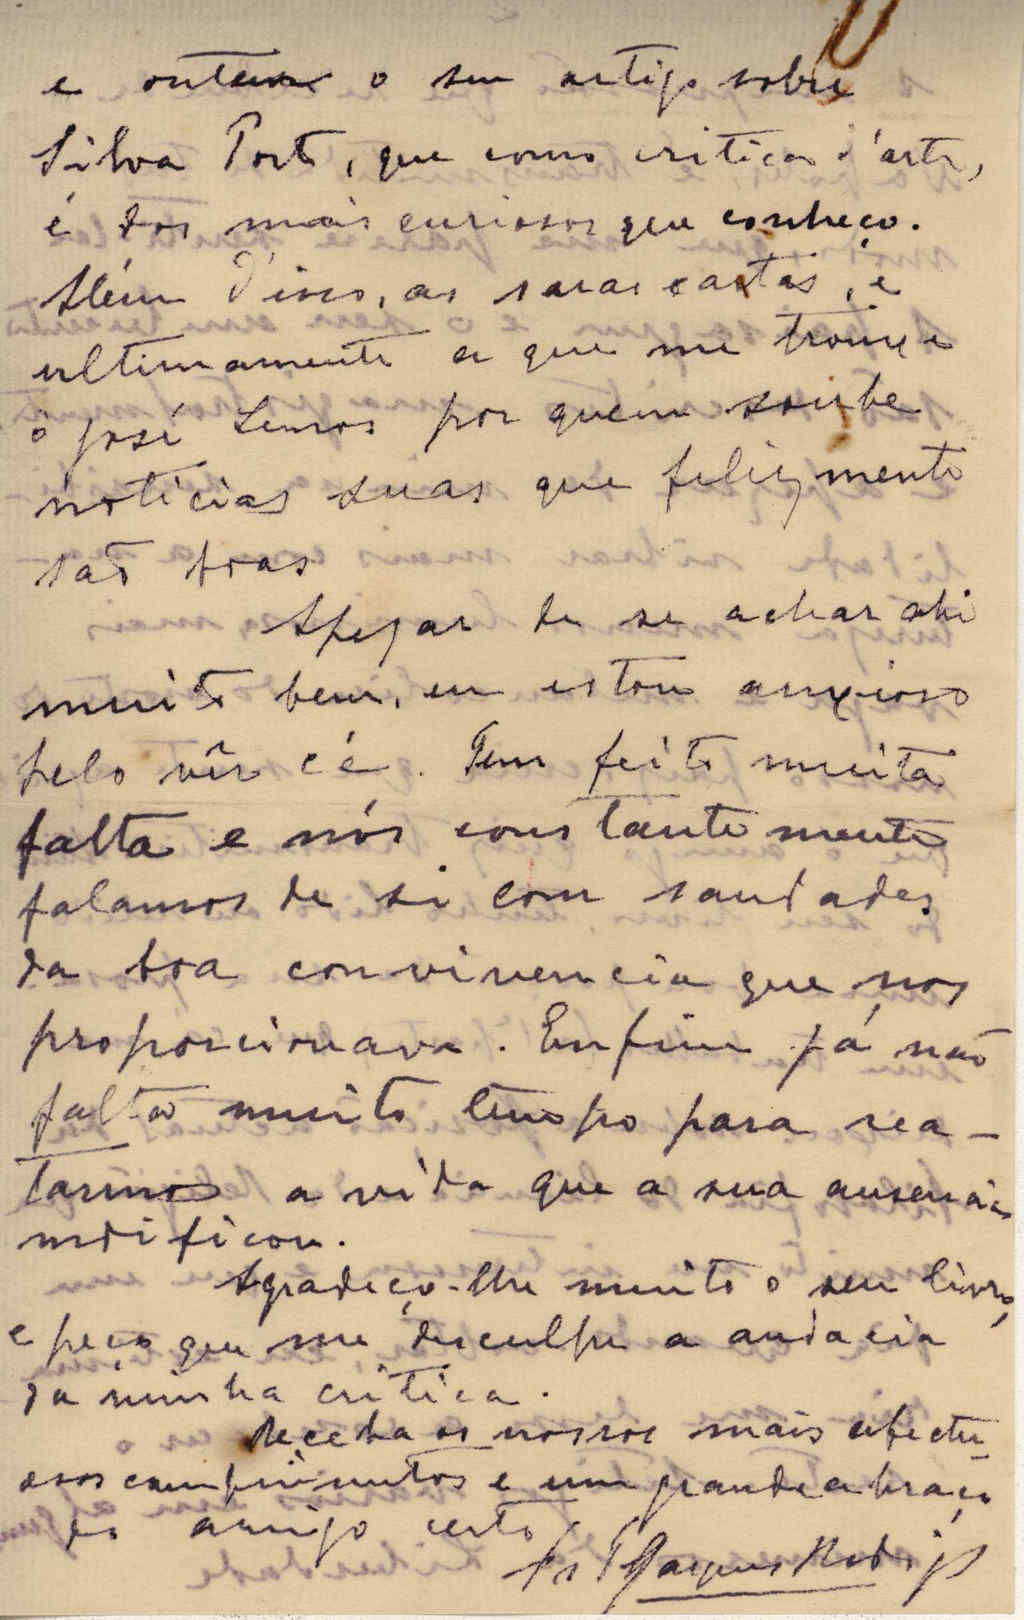 e o seu artigo sobre
Silva Porto, que como critica d'arte,
é dos mais curiosos que conheço.
Além d'isso, as suas cartas, e
ultimamente a que me trouxe
o José Lemos por quem soube
noticias suas que felizmente
são boas
Apezar de se achar ahi
muito bem, eu estou anxioso
pelo vêr cá. Tem feito muita
falta e nós constantemente
falamos de si com saudades
da boa convivencia que nos
proporcionava. Enfim já não
falta muito tempo para rea-
tarmos a vida que a sua ausencia
modificou.
Agradeço-lhe muito o seu livro,
e peço que me desculpe a audacia
da minha critica.
Receba os nossos mais afectu-
osos cumprimentos e um grande abraço
do amigo certo